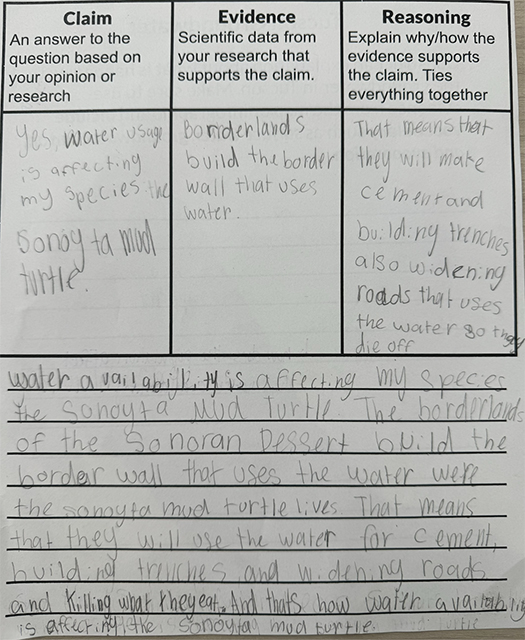 Claim
An answer to the
question based on
your opinion or
research
Evidence
Scientific data from
your research that
supports the claim.
Reasoning
Explain why/how the
evidence supports
the claim. Ties
everything together
Yes, water usage
is affecting
my species the
Sonoy ta mud
turtle.
Borderlands
build the border
wall that uses
water.
That means that
they will make
cement and
building trenches
also widening
roads that uses
the water so they
die off
water availability is affecting my species
the Sonoyta Mud Turtle. The borderlands
of the Sonoran Dessert build the
border wall that uses the water were
the sonoyta mud turtle lives. That means
that they will use the water for cement,
building trenches, and widening roads
and killing what they eat. And thats how water availability
is affecting the Sonoyta mud turtle.